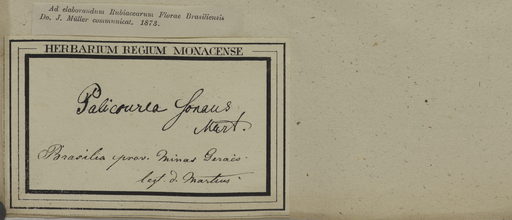 Ad elaborandum Rubiacearum Florae Brasiliensis
Do. J. Müller communicat. 1873.
HERBARIUM REGIUM MONACENSE
Palicourea sonans
Mart.
Brasilia prov. Minas Geraes.
legt. d. Martius.